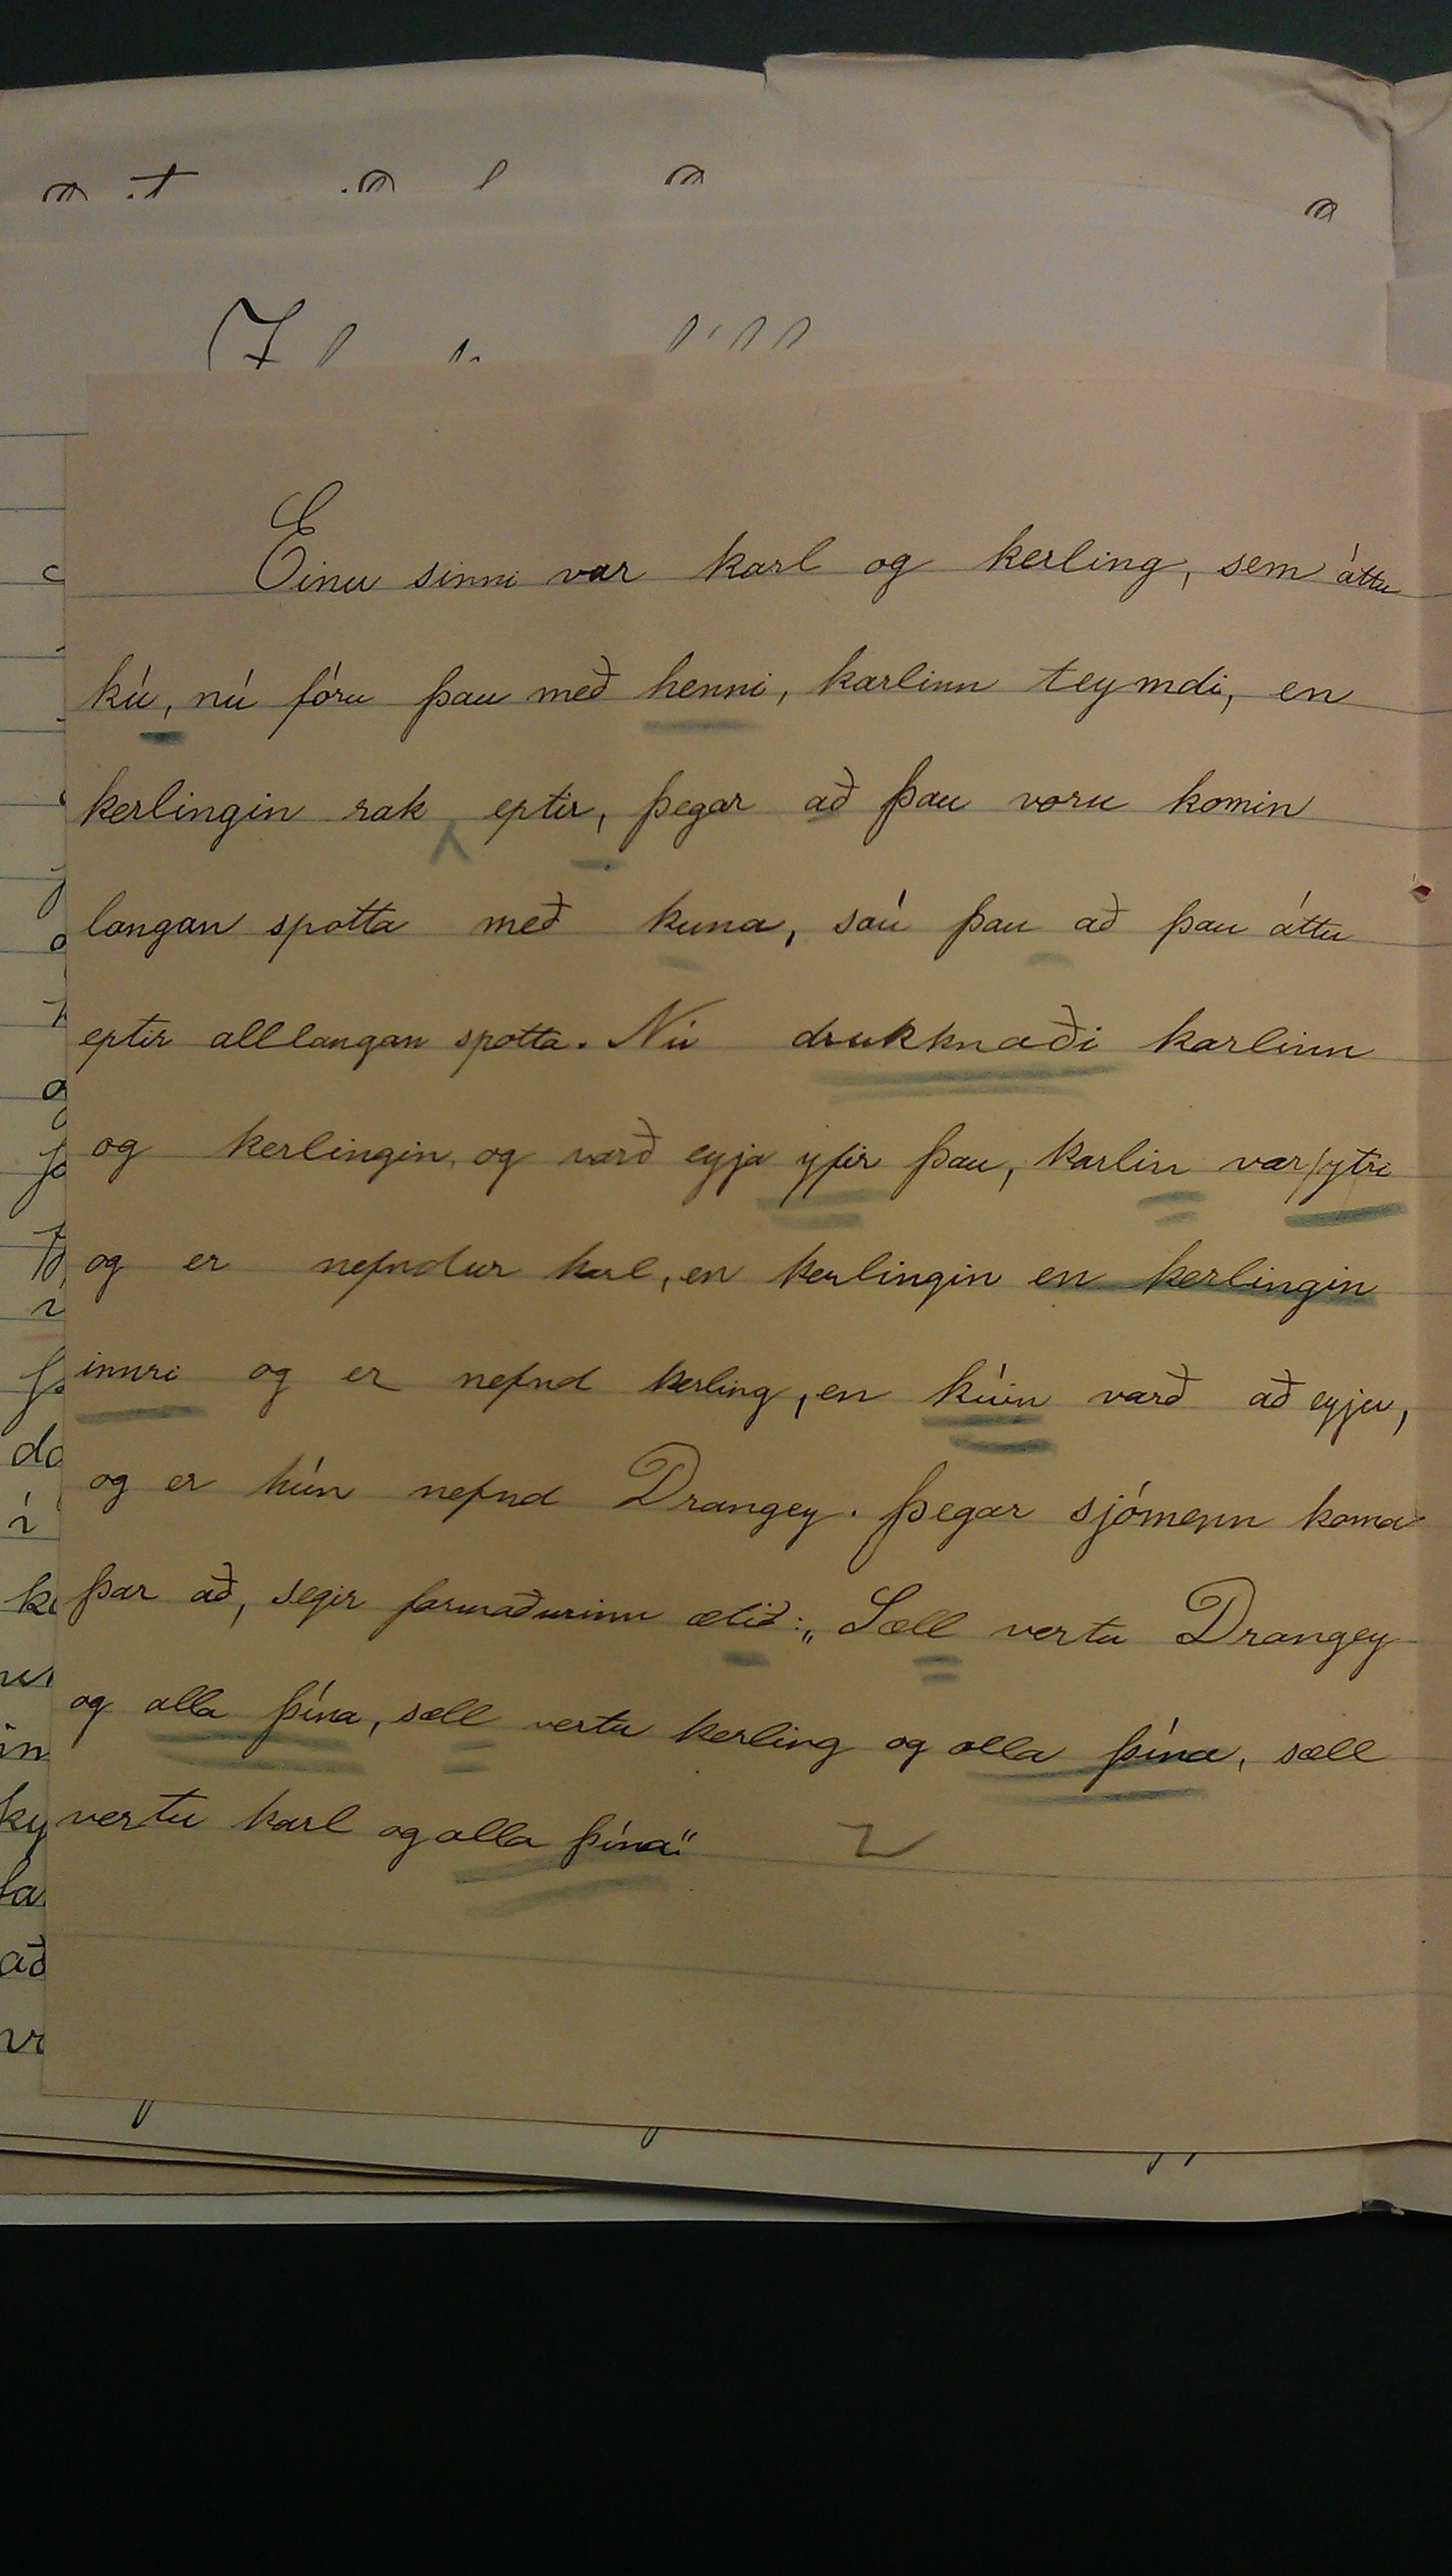 Einu sinni var karl og kerling, sem áttu
kú, nú fóru þau með henni, karlinn teymdi, en
kerlingin rak eptir, þegar að þau voru komin
langan spotta með kuna, sáu þau að þau áttu
eptir alllangan spotta. Nú drukknaði karlinn
og kerlingin, og varð eyja yfir þau, karlin var ytri
og er nefndur karl, en kerlingin en kerlingin
innri og er nefnd kerling, en kúin varð að eyju,
og er hún nefnd Drangey. Þegar sjómenn koma
þar að, segir formaðurinn ætið: „Sæll vertu Drangey
og alla þína, sæll vertu kerling og alla þína, sæll
vertu karl og alla þína."